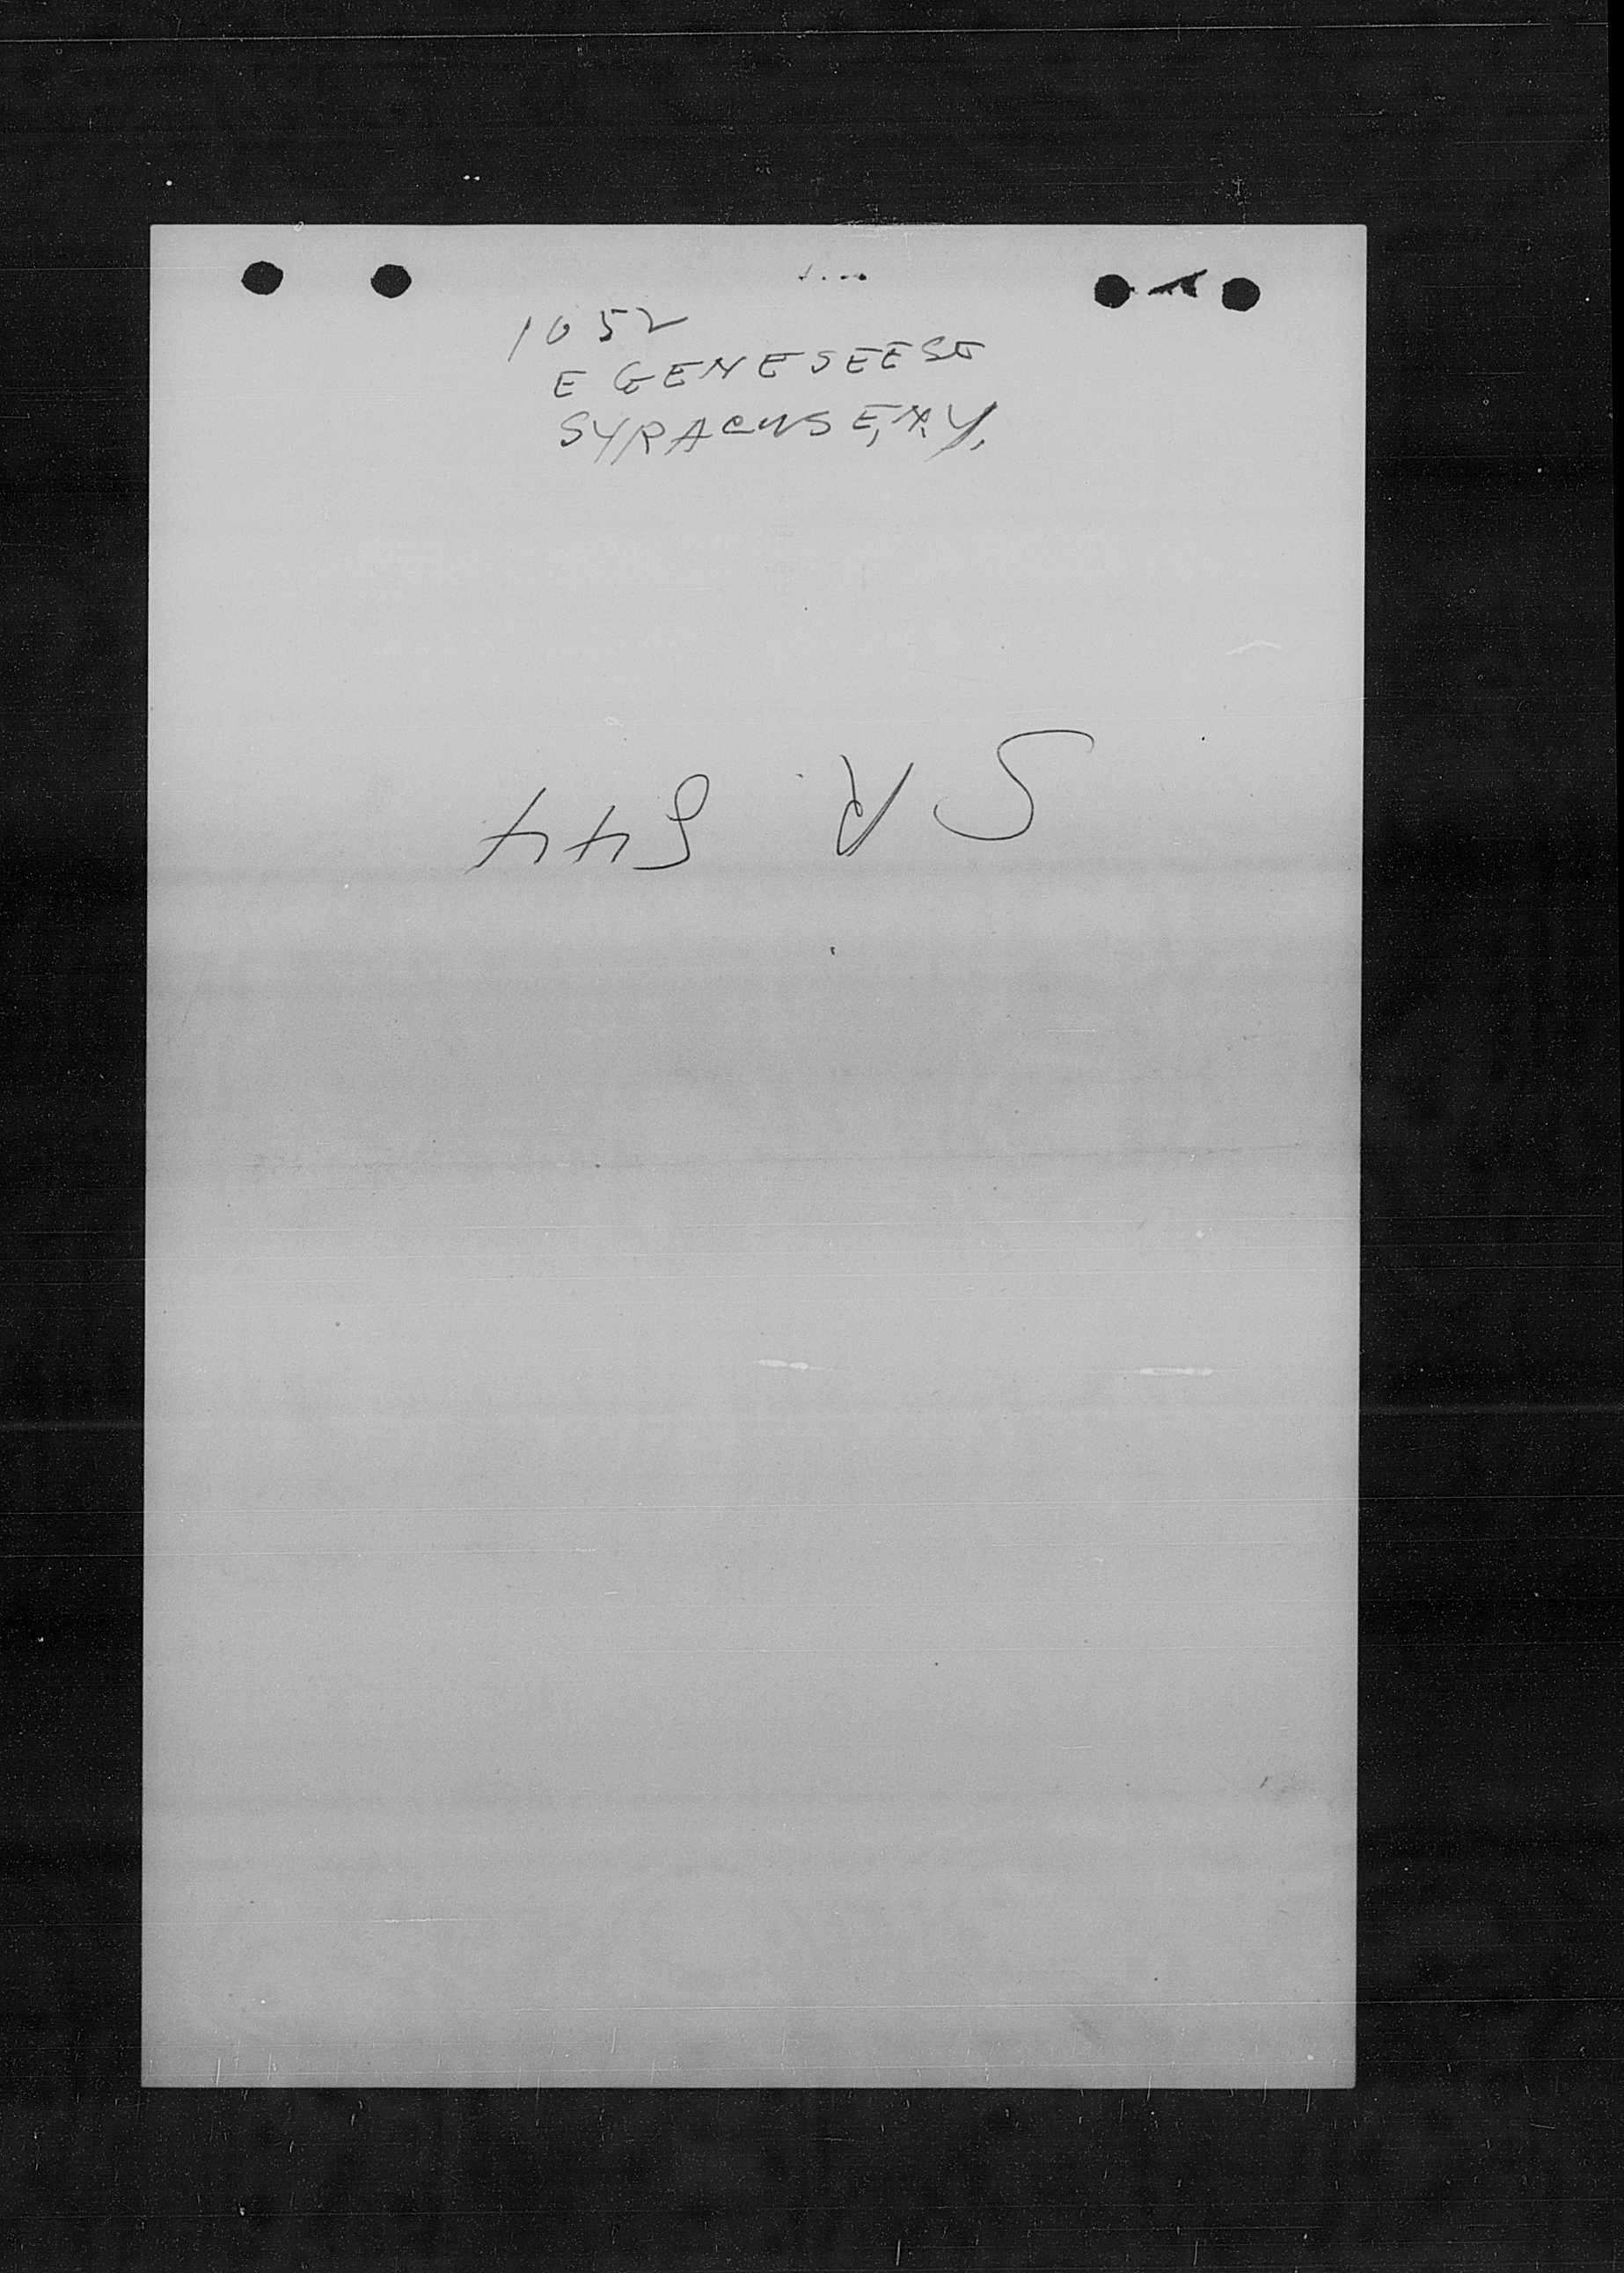 1052
E GENESEE ST
SYRACUSE, N.Y.
S R. 544